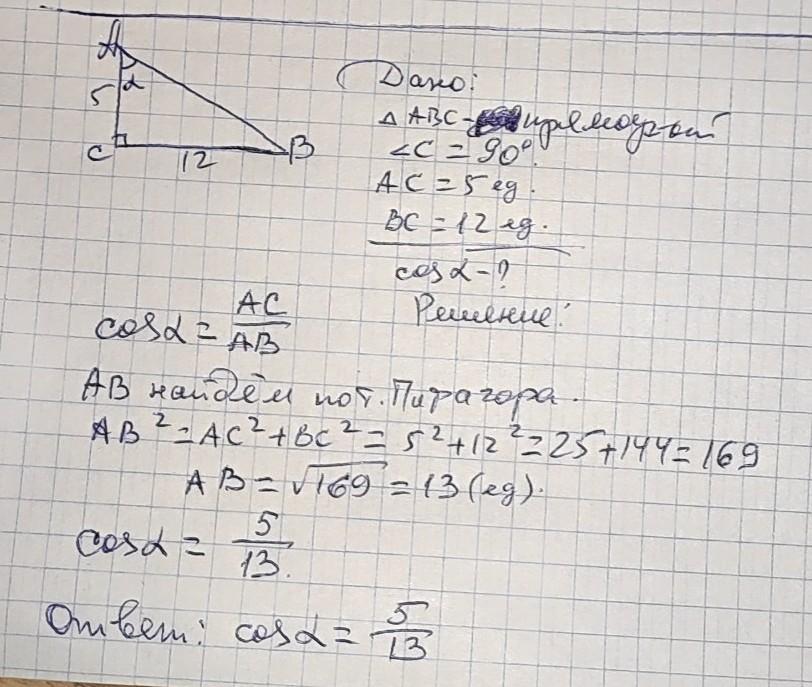 A
α
5
C
12
B
Дано:
△ ABC - прямоуг-ый
∠C = 90°.
AC = 5 ед.
BC = 12 ед.
cos α - ?
Решение:
cos α = AC/AB
AB найдём по т. Пифагора.
AB² = AC² + BC² = 5² + 12² = 25 + 144 = 169
AB = √169 = 13 (ед).
cos α = 5/13.
Ответ: cos α = 5/13